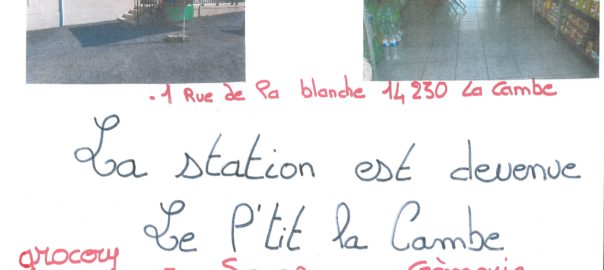 .1 Rue de la blanche 14230 La Cambe
La station est devenue
Le P'tit la Cambe
grocery